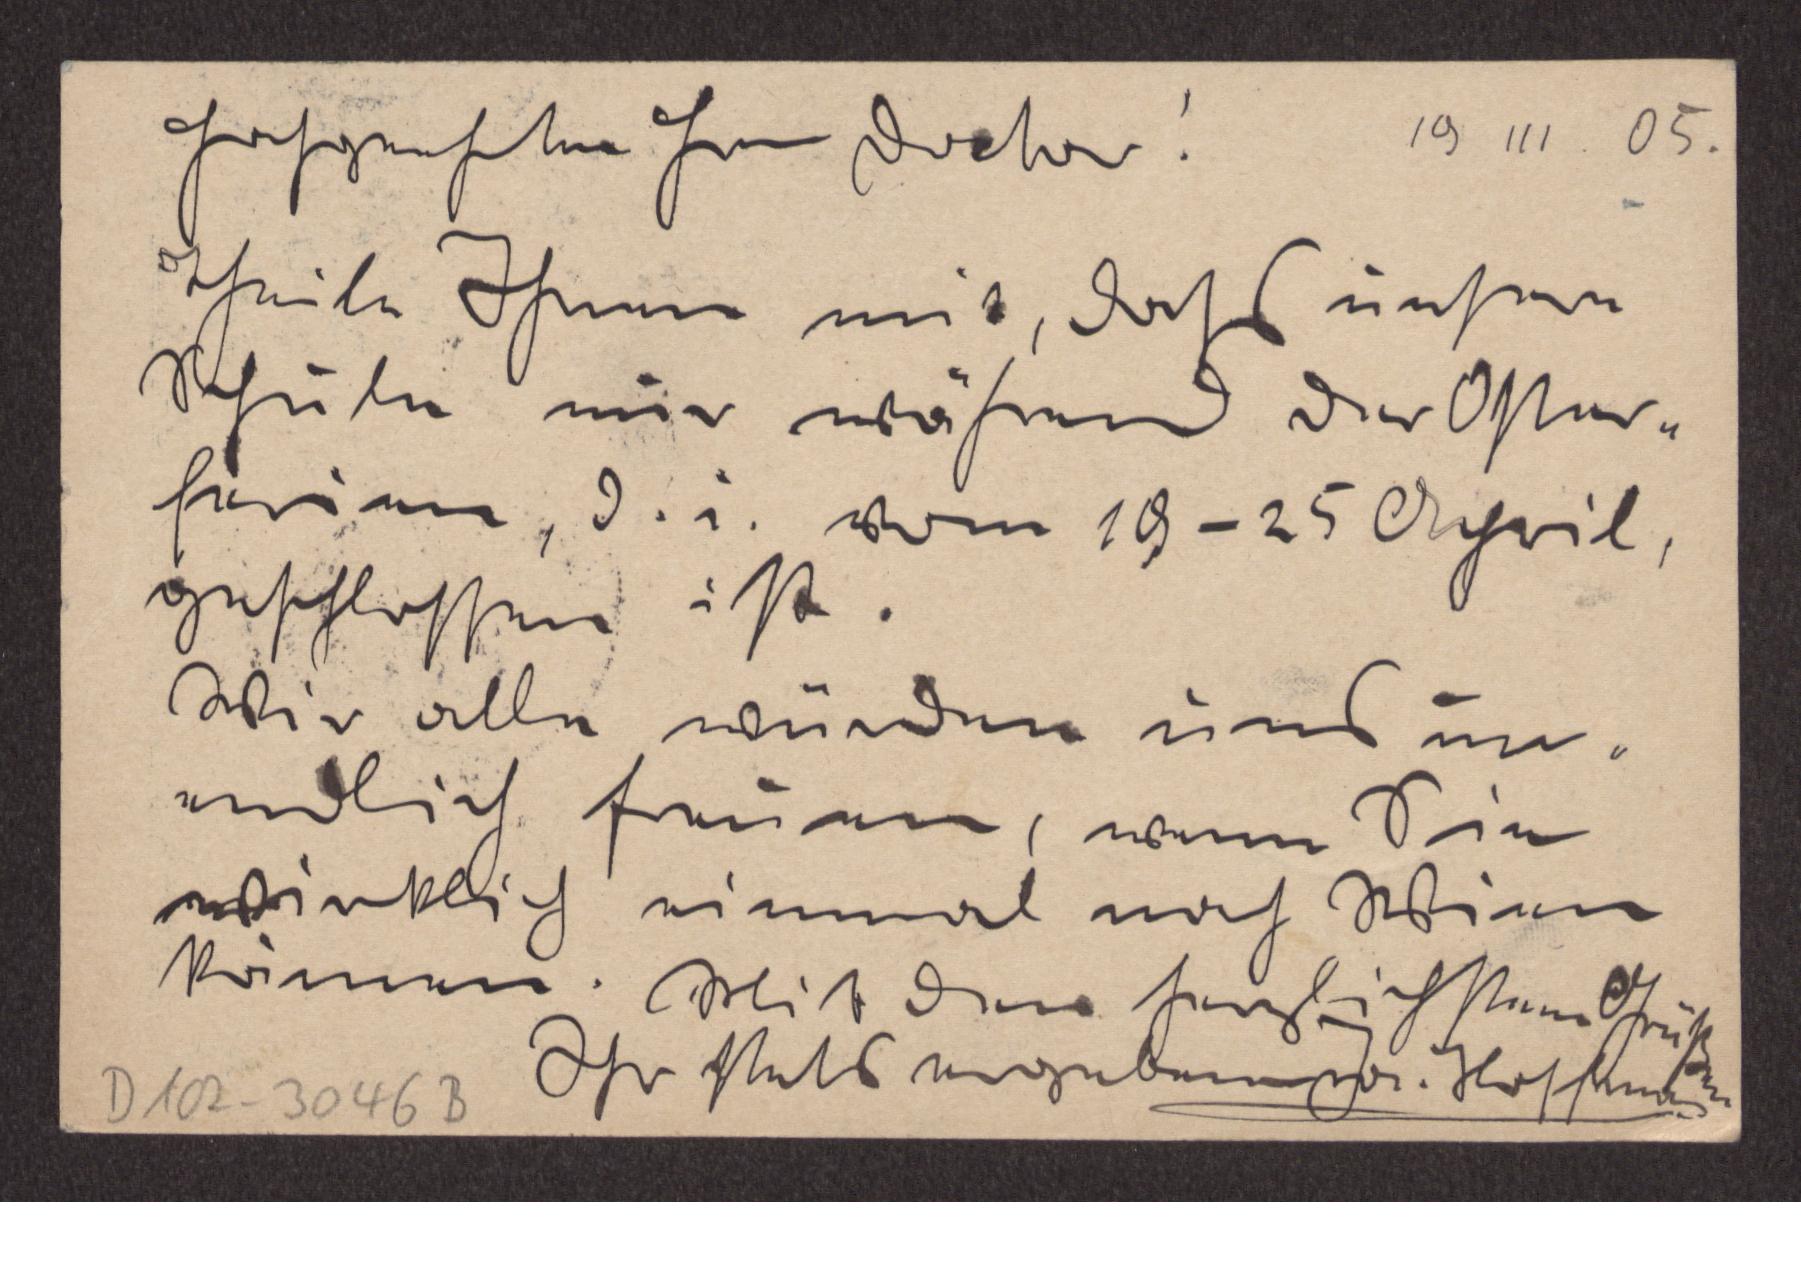 Hochgeehrter Herr Doctor! 19 III. 05.
Theile Ihnen mit, daſs unsere
Schule nur während der Oster„
ferien, d. i. vom 19–25 April,
geschlossen ist.
Wir alle würden uns un„
endlich freuen, wenn Sie
wirklich einmal nach Wien
kämen. Mit den herzlichsten Grüßen
Ihr stets ergebener Jos. Hoffmann
D 102-3046 B